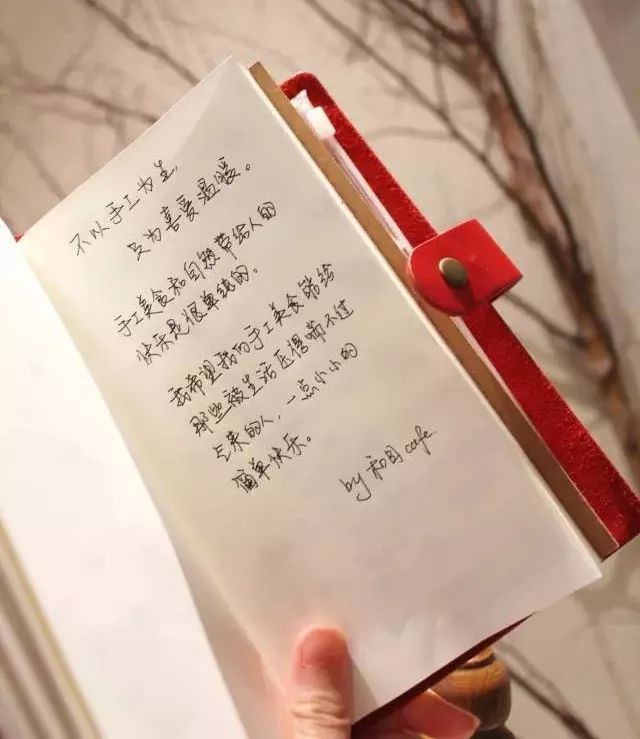 不以手工为生,
只为喜爱温暖。
手工美食和自然带给人的
快乐是很单纯的。
我希望我的手工美食能给
那些被生活压得喘不过
气来的人,一点小小的
简单快乐。
by 和目 cafe.